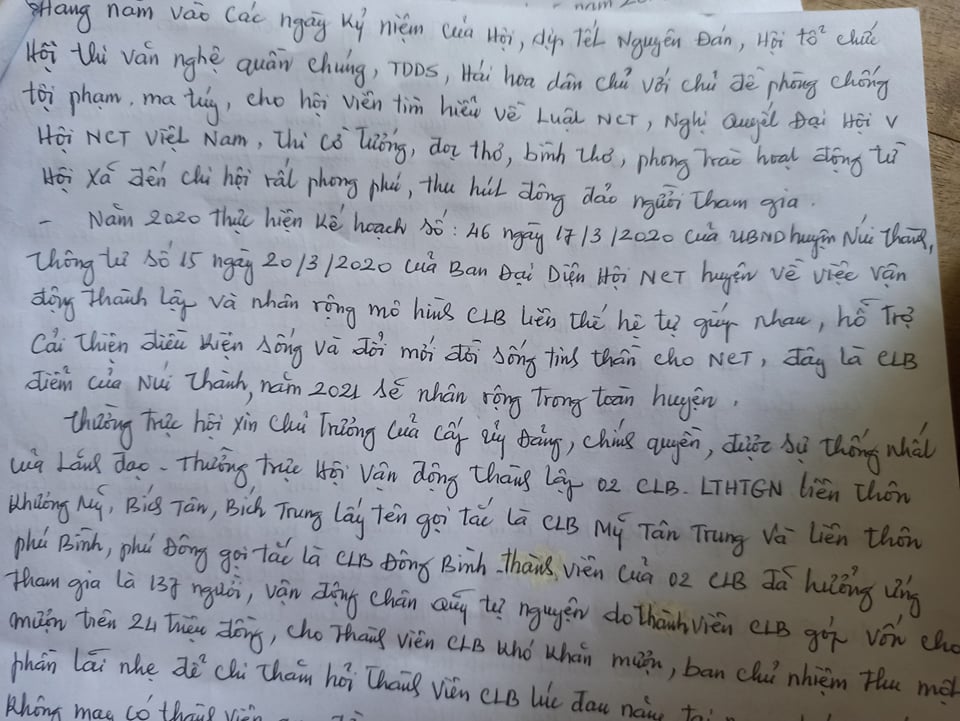 năm 20
Hàng năm vào các ngày kỷ niệm của Hội, dịp tết Nguyên Đán, Hội tổ chức
Hội thi văn nghệ quần chúng, TDDS, Hái hoa dân chủ với chủ đề phòng chống
tội phạm, ma túy, cho hội viên tìm hiểu về Luật NCT, Nghị Quyết Đại Hội V
Hội NCT Việt Nam, thi cờ Tướng, đọc thơ, bình thơ, phong trào hoạt động từ
Hội xã đến chi hội rất phong phú, thu hút đông đảo người tham gia.
- Năm 2020 thực hiện kế hoạch số: 46 ngày 17/3/2020 của UBND huyện Núi Thành,
thông tư số 15 ngày 20/3/2020 của Ban Đại Diện Hội NCT huyện về việc vận
động thành lập và nhân rộng mô hình CLB liên thế hệ tự giúp nhau, hỗ trợ
cải thiện điều kiện sống và đổi mới đời sống tinh thần cho NCT, đây là CLB
điểm của Núi Thành, năm 2021 sẽ nhân rộng trong toàn huyện.
Thường trực hội xin chủ trương của cấp ủy Đảng, chính quyền, được sự thống nhất
của Lãnh đạo - Thường trực Hội vận động thành lập 02 CLB-LTHTGN liên thôn
Khương Mỹ, Bích Tân, Bích Trung lấy tên gọi tắc là CLB Mỹ Tân Trung và liên thôn
phú Bình, phú Đông gọi tắc là CLB Đông Bình - thành viên của 02 CLB đã hưởng ứng
tham gia là 137 người, vận động chân quỹ tự nguyện do thành viên CLB góp vốn cho
mượn trên 24 triệu đồng, cho thành viên CLB khó khăn mượn, ban chủ nhiệm thu một
phần lãi nhẹ để chi thăm hỏi thành viên CLB lúc đau nằm tại
không may có thành viên